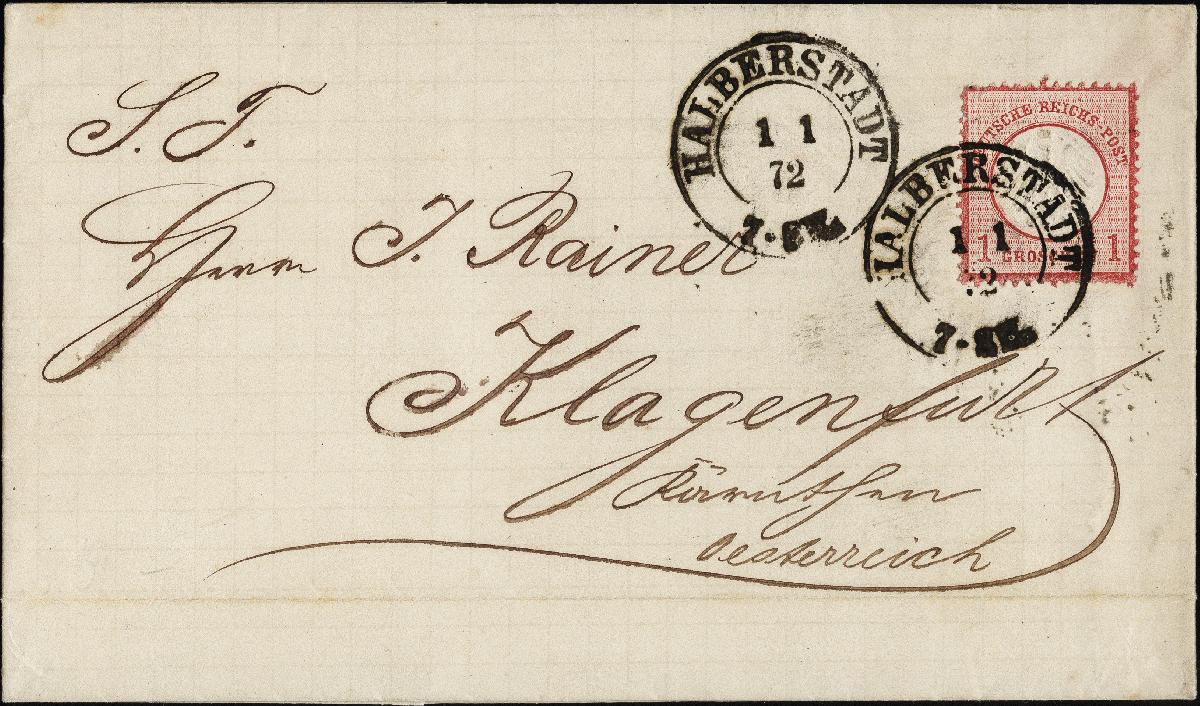 S. T.
Herrn J. Rainer
Klagenfurt
Kärnthen
Oesterreich
HALBERSTADT
1 1
72
7-8N.
DEUTSCHE REICHS-POST
1 GROSCHEN 1
HALBERSTADT
1 1
72
7-8N.